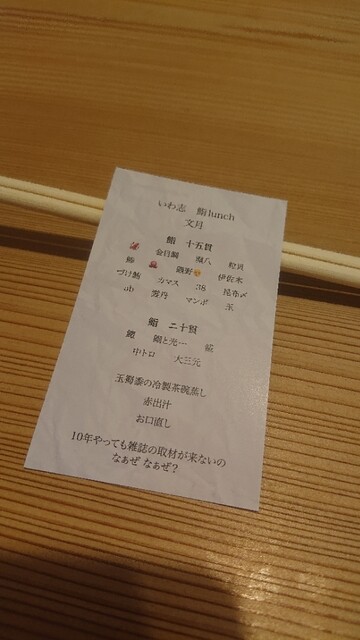 いわ志 鮨lunch
文月
鮨 十五貫
🦑 金目鯛 塩八 粒貝
鯵 🐙 磯野😍 伊佐木
づけ鮪 カマス 38 昆布〆
ab 雲丹 マンボ 玉
鮨 二十貫
鱧 銀と光一
中トロ 大三元
玉蜀黍の冷製茶碗蒸し
赤出汁
お口直し
10年やっても雑誌の取材が来ないの
なぁぜ なぁぜ?